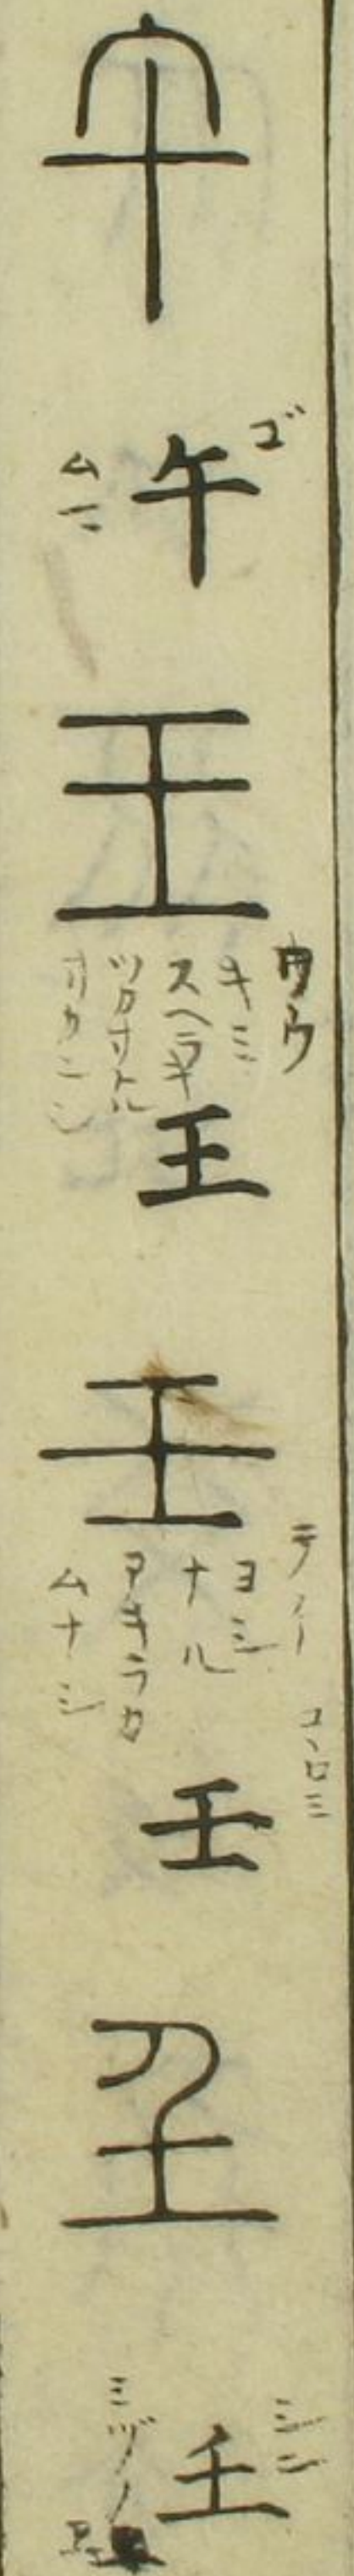 午
ゴ
午
ムマ
王
ワウ
王
キミ
スヘラキ
ツカサトル
サカニシ
壬
テイ
コヽロミ
壬
ヨシ
ナル
アキラカ
ムナシ
𡈼
シン
𡈼
ミヅノ